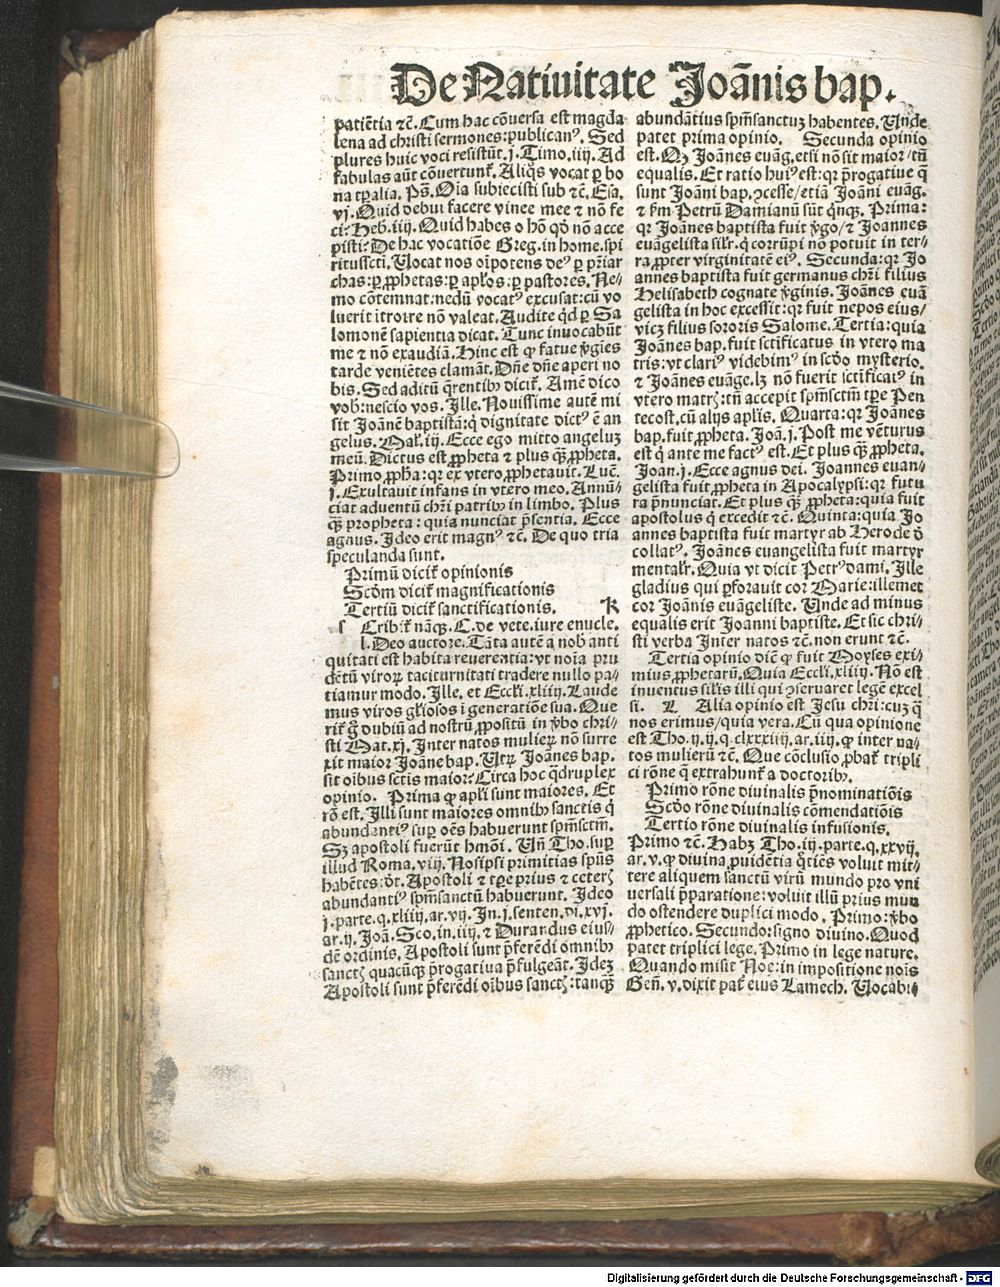 De Natiuitate Joãnis bap.
patiẽtia ⁊c̃. Cum hac cõuersa est magda
lena ad christi sermones: publicanꝰ. Sed
plures huic voci resistũt. j. Timo. iiij. Ad
fabulas aũt cõuertunt̃. Aliq̃s vocat ꝑ bo
na tp̃alia. Ps̃. Oĩa subiecisti sub ⁊c̃. Esa.
vj. Quid debui facere vinee mee ⁊ nõ fe
ci? Heb. iiij. Quid habes o hõ qd̃ nõ acce
pisti? De hac vocatiõe Greg. in home. spi
ritussct̃i. Uocat nos oĩpotens deꝰ ꝑ pr̃iar
chas: ꝑ ꝓphetas: ꝑ apl̃os: ꝑ pastores. Ne⸗
mo cõtemnat: nedũ vocatꝰ excusat: cũ vo
luerit ĩtroire nõ valeat. Audite qd̃ ꝑ Sa
lomonẽ sapientia dicat. Tunc inuocabũt
me ⁊ nõ exaudiã. Hinc est ꝙ fatue v̓gĩes
tarde veniẽtes clamãt. Dñe dñe aperi no
bis. Sed aditũ q̃rentibꝫ dicit̃. Amẽ dico
vob̃: nescio vos. Ille. Nouissime autẽ mi
sit Joãnẽ baptistã: q̇ dignitate dictꝰ ẽ an
gelus. Mal. iij. Ecce ego mitto angeluꝫ
meũ. Dictus est ꝓpheta ⁊ plus qꝫ̃ ꝓpheta.
Primo ꝓph̃a: qꝛ ex vtero ꝓphetauit. Luc̃.
j. Exultauit infans in vtero meo. Annũ⸗
ciat aduentũ chr̃i patribꝫ in limbo. Plus
qꝫ̃ propheta: quia nunciat p̃sentia. Ecce
agnus. Ideo erit magnꝰ ⁊c̃. De quo tria
speculanda sunt.
Primũ dicit̃ opinionis
Scd̃m dicit̃ magnificationis
Tertiũ dicit̃ sanctificationis. K
s Cribit̃ nãqꝫ. C. de vete. iure enucle.
l. Deo auctore. Tãta autẽ a nob̃ anti
quitati est habita reuerentia: vt noĩa pru
dẽtũ viroꝝ taciturnitati tradere nullo pa⸗
tiamur modo. Ille. et Eccl̃i. xliiij. Laude
mus viros gl̃iosos ĩ generatiõe sua. Que
rit̃ g̊ dubiũ ad nostrũ ꝓpositũ in v̓bo chri⸗
sti Mat. xj. Inter natos mulieꝝ nõ surre
xit maior Joãne bap. Utꝝ Joãnes bap.
sit oĩbus sct̃is maior? Circa hoc q̃druplex
opinio. Prima ꝙ apl̃i sunt maiores. Et
rõ est. Illi sunt maiores omnibꝫ sanctis q̇
abundantiꝰ suꝑ oẽs habuerunt sp̃msct̃m.
Sꝫ apostoli fuerũt hmõi. Uñ Tho. suꝑ
illud Roma. viij. Nosipsi primitias sp̃us
habẽtes: d̃t. Apostoli ⁊ tp̃e prius ⁊ ceterꝭ
abundantiꝰ sp̃msanctũ habuerunt. Ideo
j. parte. q. xliij. ar. vij. In. j. senten. di. xvj.
ar. ij. Joã. Sco. in. iiij. ⁊ Durandus eius⸗
dẽ ordinis. Apostoli sunt p̃ferẽdi omnibꝫ
sanctꝭ quacũqꝫ p̃rogatiua p̃fulgeãt. Ideꝫ
Apostoli sunt p̃ferẽdi oĩbus sanctꝭ: tanqꝫ̃
abundãtius sp̃msanctuꝫ habentes. Unde
patet prima opinio. Secunda opinio
est. Qꝫ Joãnes euãg. etsi nõ sit maior / tñ
equalis. Et ratio huiꝰ est: qꝛ p̃rogatiue q̃
sunt Joãni bap. ꝯcesse / etiã Joãni euãg.
⁊ s̃m Petrũ Damianũ sũt q̇nqꝫ. Prima:
qꝛ Joãnes baptista fuit v̓go / ⁊ Joannes
euãgelista sil̃r. q̇ corrũpi nõ potuit in ter⸗
ra ꝓpter virginitatẽ eiꝰ. Secunda: qꝛ Jo
annes baptista fuit germanus chr̃i filius
Helisabeth cognate v̓ginis. Joãnes euã
gelista in hoc excessit: qꝛ fuit nepos eius /
vicꝫ filius sororis Salome. Tertia: quia
Joãnes bap. fuit sct̃ificatus in vtero ma
tris: vt clariꝰ videbimꝰ in scd̃o mysterio.
⁊ Joãnes euãge. lꝫ nõ fuerit sct̃ificatꝰ in
vtero matrꝭ: tñ accepit sp̃msct̃m tp̃e Pen
tecost. cũ alijs apl̃is. Quarta: qꝛ Joãnes
bap. fuit ꝓpheta. Joã. j. Post me vẽturus
est q̇ ante me factꝰ est. Et plus qꝫ̃ ꝓpheta.
Joan. j. Ecce agnus dei. Joannes euan⸗
gelista fuit ꝓpheta in Apocalypsi: qꝛ futu
ra p̃nunciat. Et plus qꝫ̃ ꝓpheta: quia fuit
apostolus q̇ excedit ⁊c̃. Quinta: quia Jo
annes baptista fuit martyr ab Herode d̓
collatꝰ. Joãnes euangelista fuit martyr
mental̃r. Quia vt dicit Petrꝰ dami. Ille
gladius qui ꝑforauit cor Marie: illemet
cor Joãnis euãgeliste. Unde ad minus
equalis erit Joanni baptiste. Et sic chri⸗
sti verba Inter natos ⁊c̃. non erunt ⁊c̃.
Tertia opinio diẽ ꝙ fuit Moyses exi⸗
mius ꝓphetarũ. Quia Eccl̃i. xliiij. Nõ est
inuentus sil̃is illi qui ꝯseruaret legẽ excel
si. L Alia opinio est Jesu chri: cuꝫ q̃
nos erimus / quia vera. Cũ qua opinione
est Tho. ij. ij. q. clxxxiiij. ar. iij. ꝙ inter na⸗
tos mulierũ ⁊c̃. Que cõclusio ꝓbat̃ tripli
ci rõne q̃ extrahunt̃ a doctoribꝫ.
Primo rõne diuinalis p̃nominatiõis
Scd̃o rõne diuinalis cõmendatiõis
Tertio rõne diuinalis infusionis.
Primo ⁊c̃. Habꝫ Tho. iij. parte. q. xxvij.
ar. v. ꝙ diuina ꝓuidẽtia q̃tiẽs voluit mit⸗
tere aliquem sanctũ virũ mundo pro vni
uersali p̃paratione: voluit illũ prius mun
do ostendere duplici modo. Primo: v̓bo
ꝓphetico. Secundo: signo diuino. Quod
patet triplici lege. Primo in lege nature.
Quando misit Noe: in impositione noĩs
Geñ. v. dixit pat̃ eius Lamech. Uocabi⸗
Digitalisierung gefördert durch die Deutsche Forschungsgemeinschaft - DFG